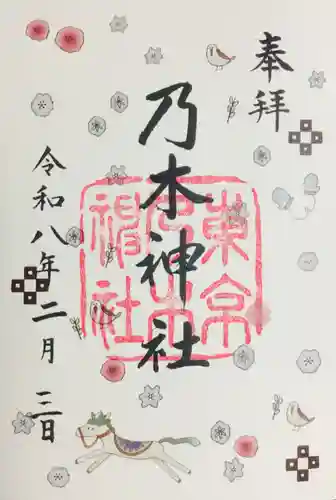 奉拝
乃木神社
東京乃木神社
令和八年二月三日